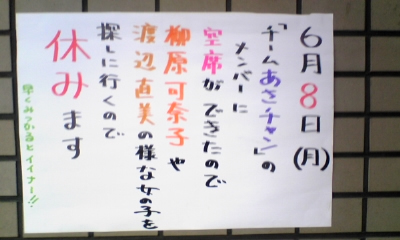 6月8日(月)
「チームあさチャン」の
メンバーに
空席ができたので
柳原可奈子や
渡辺直美の様な女の子を
探しに行くので
休みます
早くみつかるとイイナー!!